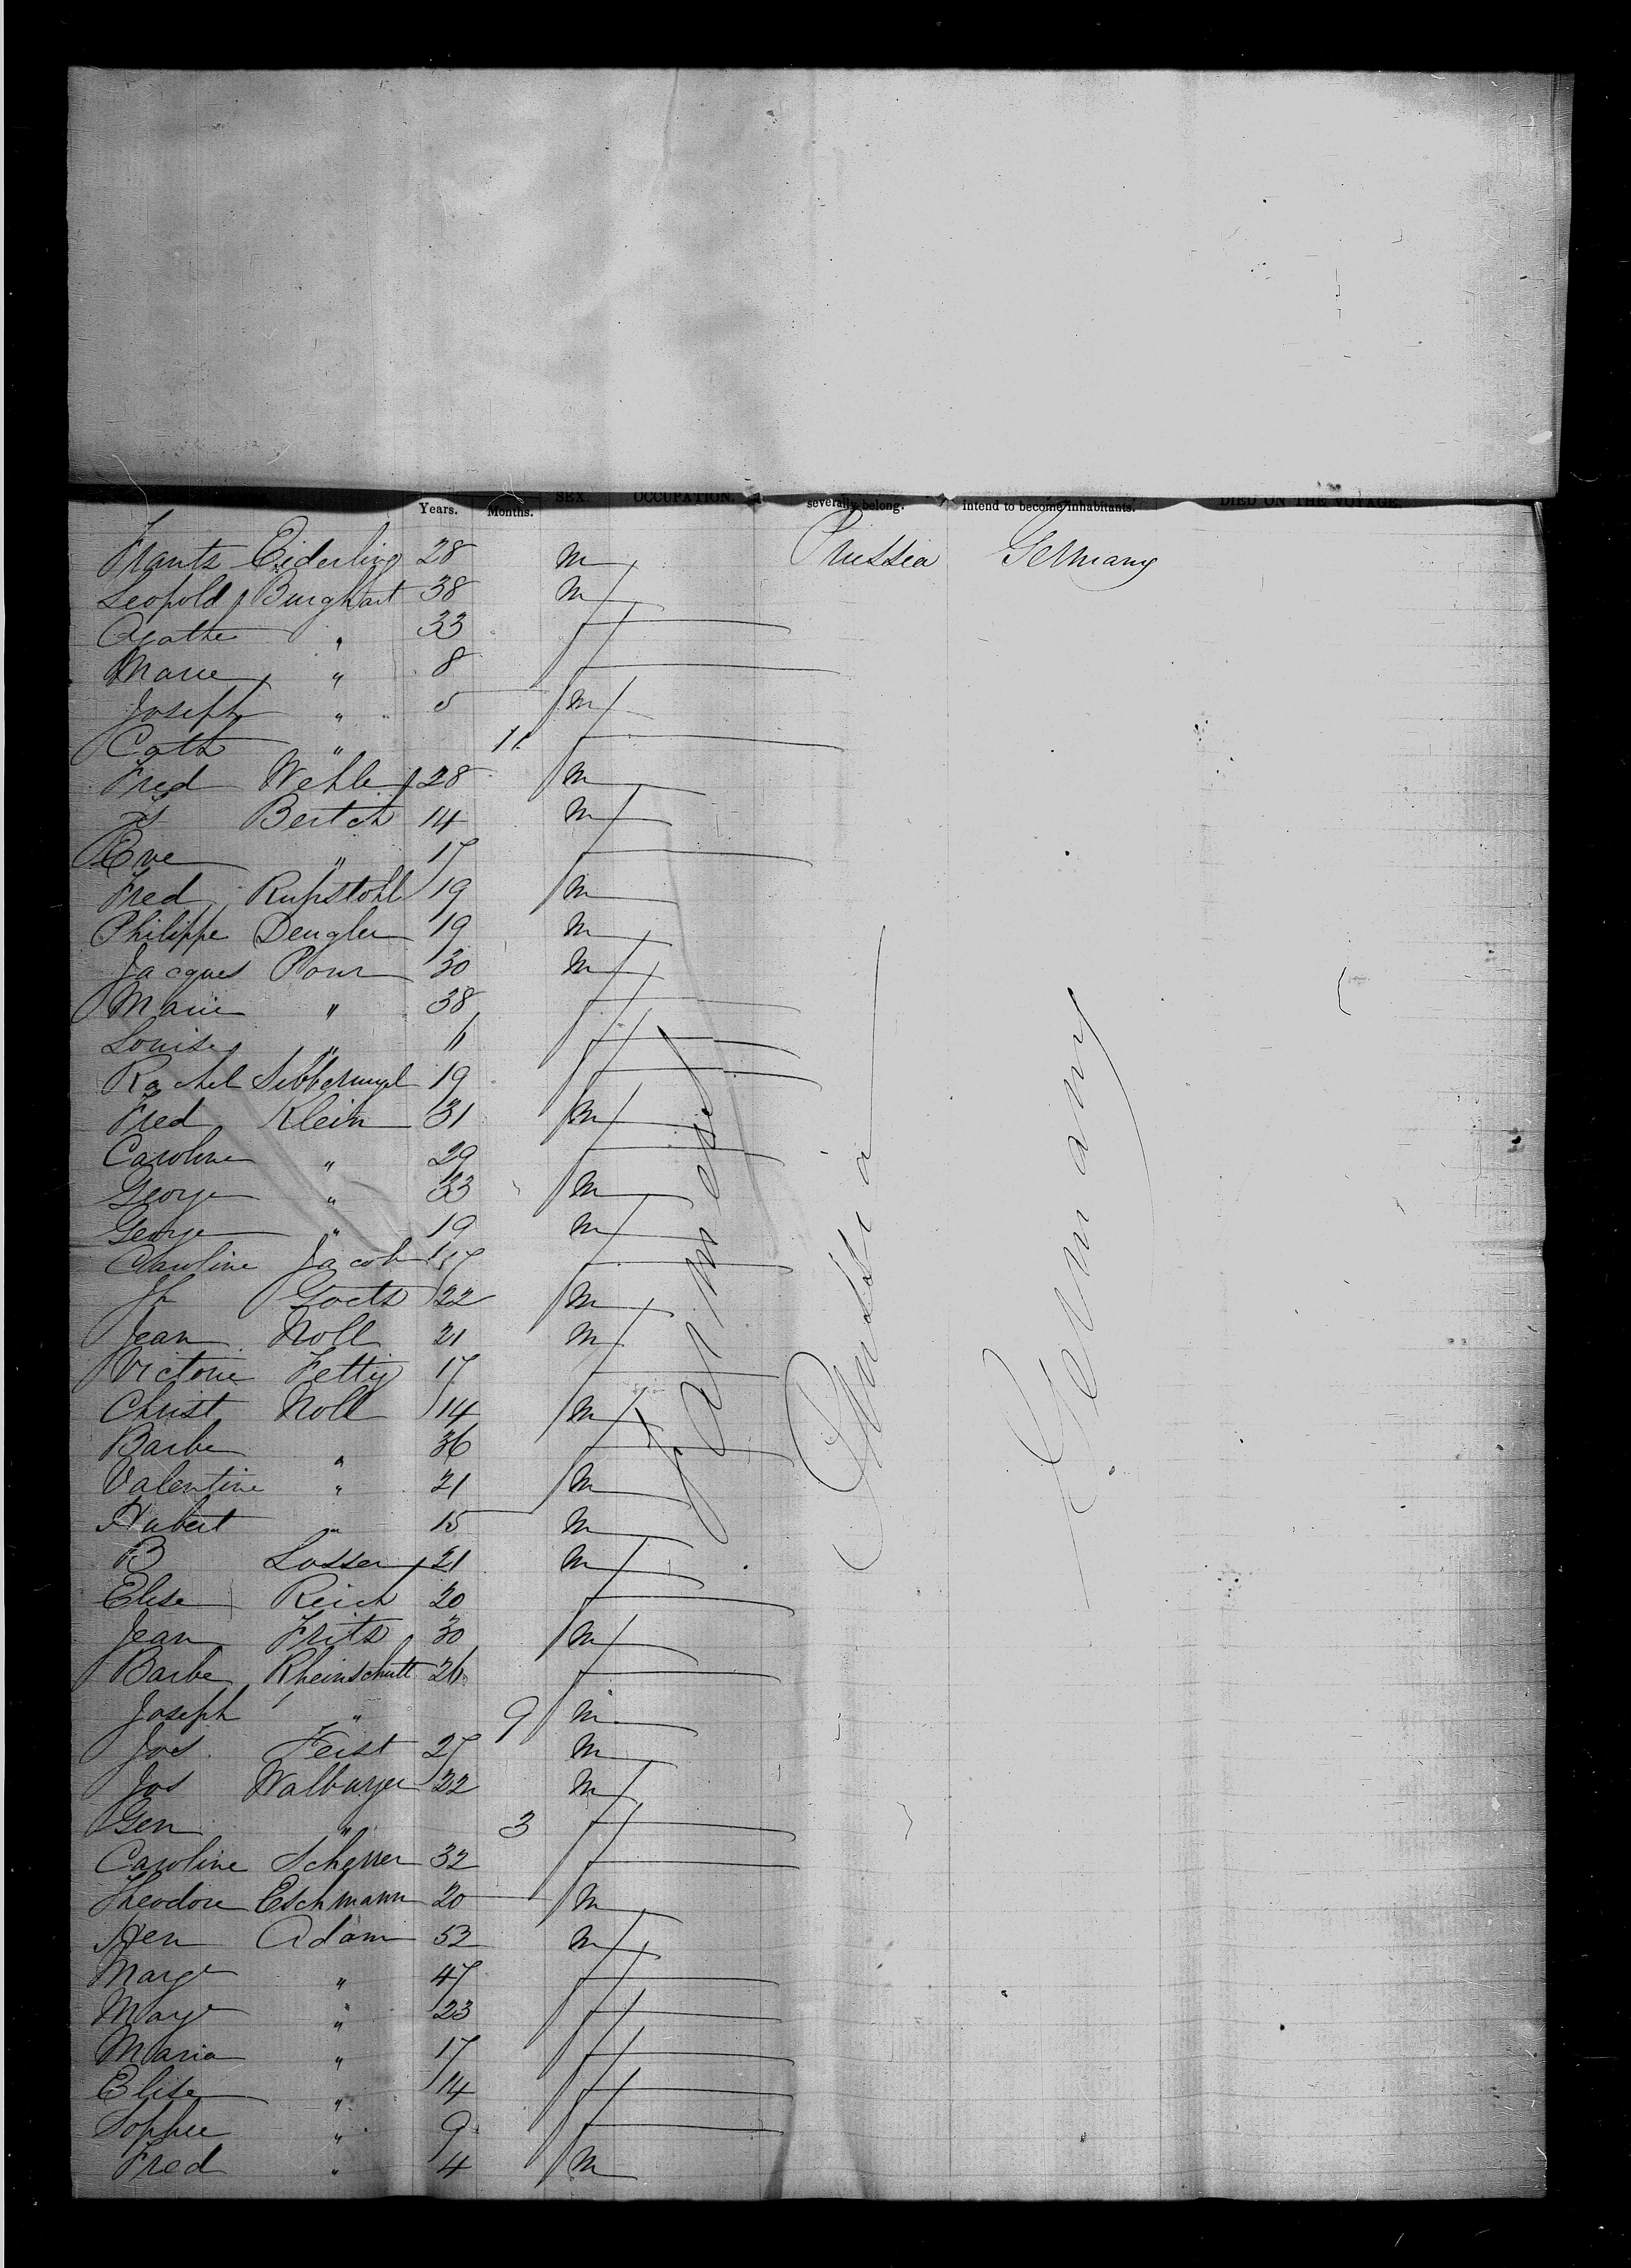 SEX. OCCUPATION. severally belong. intend to become inhabitants. DIED ON THE VOYAGE.
Years. Months.
Frantz Eiderling 28 m Prussia Germany
Leopold Burghart 38 m
Agathe " 33 f
Marie " 8 f
Joseph " 5 m
Cath " 11 f
Fred Wehle 28 m
Bertch 14 m
Eve " 17 f
Fred Rupstohl 19 m
Philippe Dengler 19 m
Jacques Pour 30 m
Marie " 38 f
Louise " 6 f
Rachel 19 f
Fred Klein 31 m
Caroline " 29 f
George " 33 m
George " 19 m
Caroline Jacob 17 f
Jh Goetz 22 m
Jean Noll 21 m
Victorie Fettig 17 f
Christ Noll 14 m
Barbe " 36 f
Valentine " 21 m
Hubert " 15 m
B Losser 21 m
Elise Reich 20 f
Jean Frits 30 m
Barbe Rheinschutt 26 f
Joseph " 9 m
Jos Feist 27 m
Jos Walburger 22 m
Gen " 3 f
Caroline Scherrer 32 f
Theodore Eschmann 20 m
Hen Adam 53 m
Marg " 47 f
Marg " 23 f
Maria " 17 f
Elise " 14 f
Sophie " 9 f
Fred " 4 m
farmers
Prussia
Germany